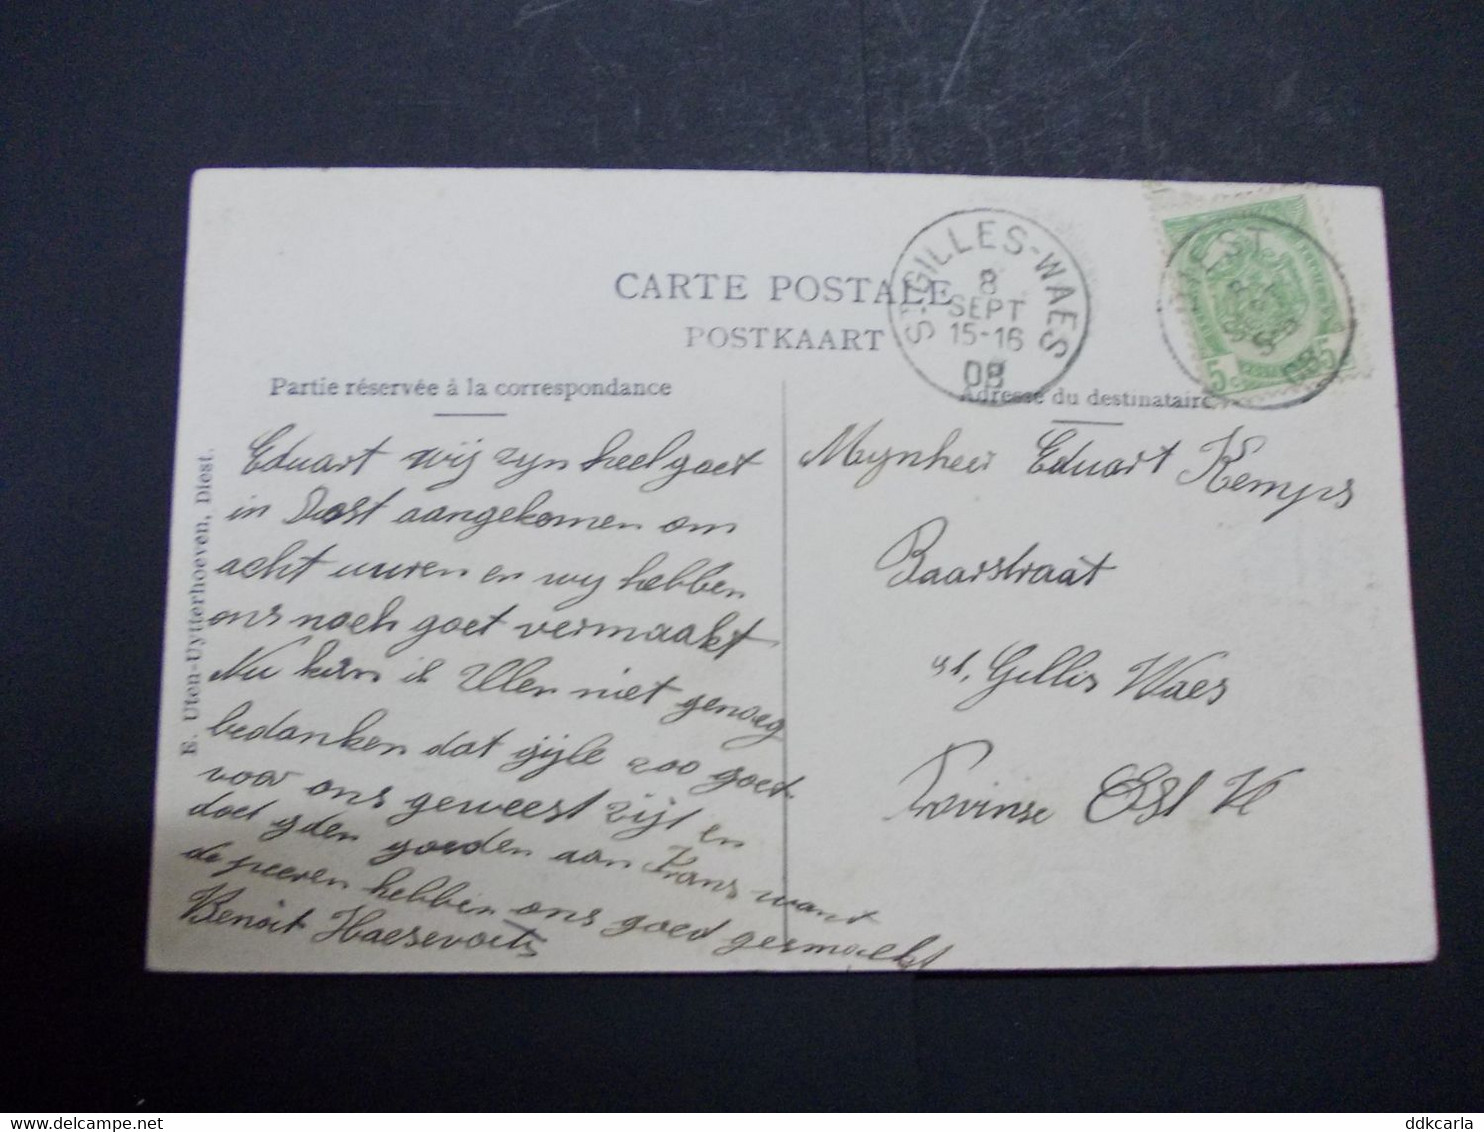 CARTE POSTALE
POSTKAART
ST GILLES-WAES
8
SEPT
15-16
08
DIEST
08
5c 5
Partie réservée à la correspondance
Adresse du destinataire
E. Uten-Uytterhoeven, Diest.
Eduart wij zyn heel goet
in Diest aangekomen om
acht uuren en wy hebben
ons noch goet vermaakt
Nu kan ik Ulien niet genoeg
bedanken dat gijle zoo goet
voor ons geweest zijt en
doet gden goeden aan Frans want
de peeren hebben ons goed gesmaekt
Benoit Haesevoets
Mynheer Eduart Kemps
Baarstraat
st. Gillis Waes
Provinse Oost Vl
ddkcarla